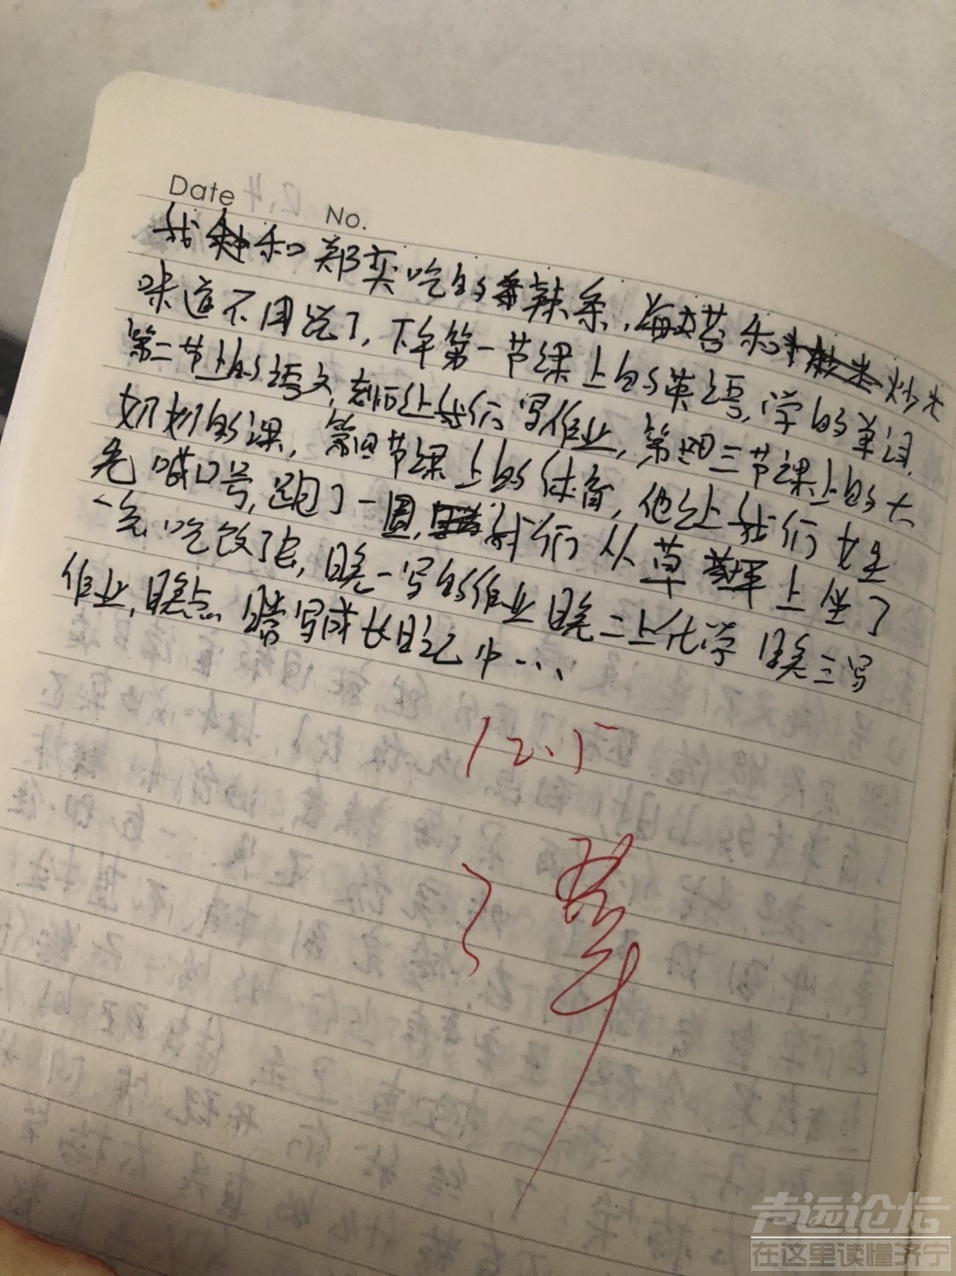 Date No.
我和郑奕吃的辣条,海苔和炒米
味道不用说了,下午第一节课上的英语,学的单词,
第二节上的语文,老师让我们写作业,第三节课上的大
的课,第四节课上的体育,他让我们女生
先喊口号,跑了一圆,我们从草坪上坐了
一会,吃饭了后,晚一写的作业晚二上化学晚三写
作业,晚点
12.5
声远论坛
在这里读懂济宁